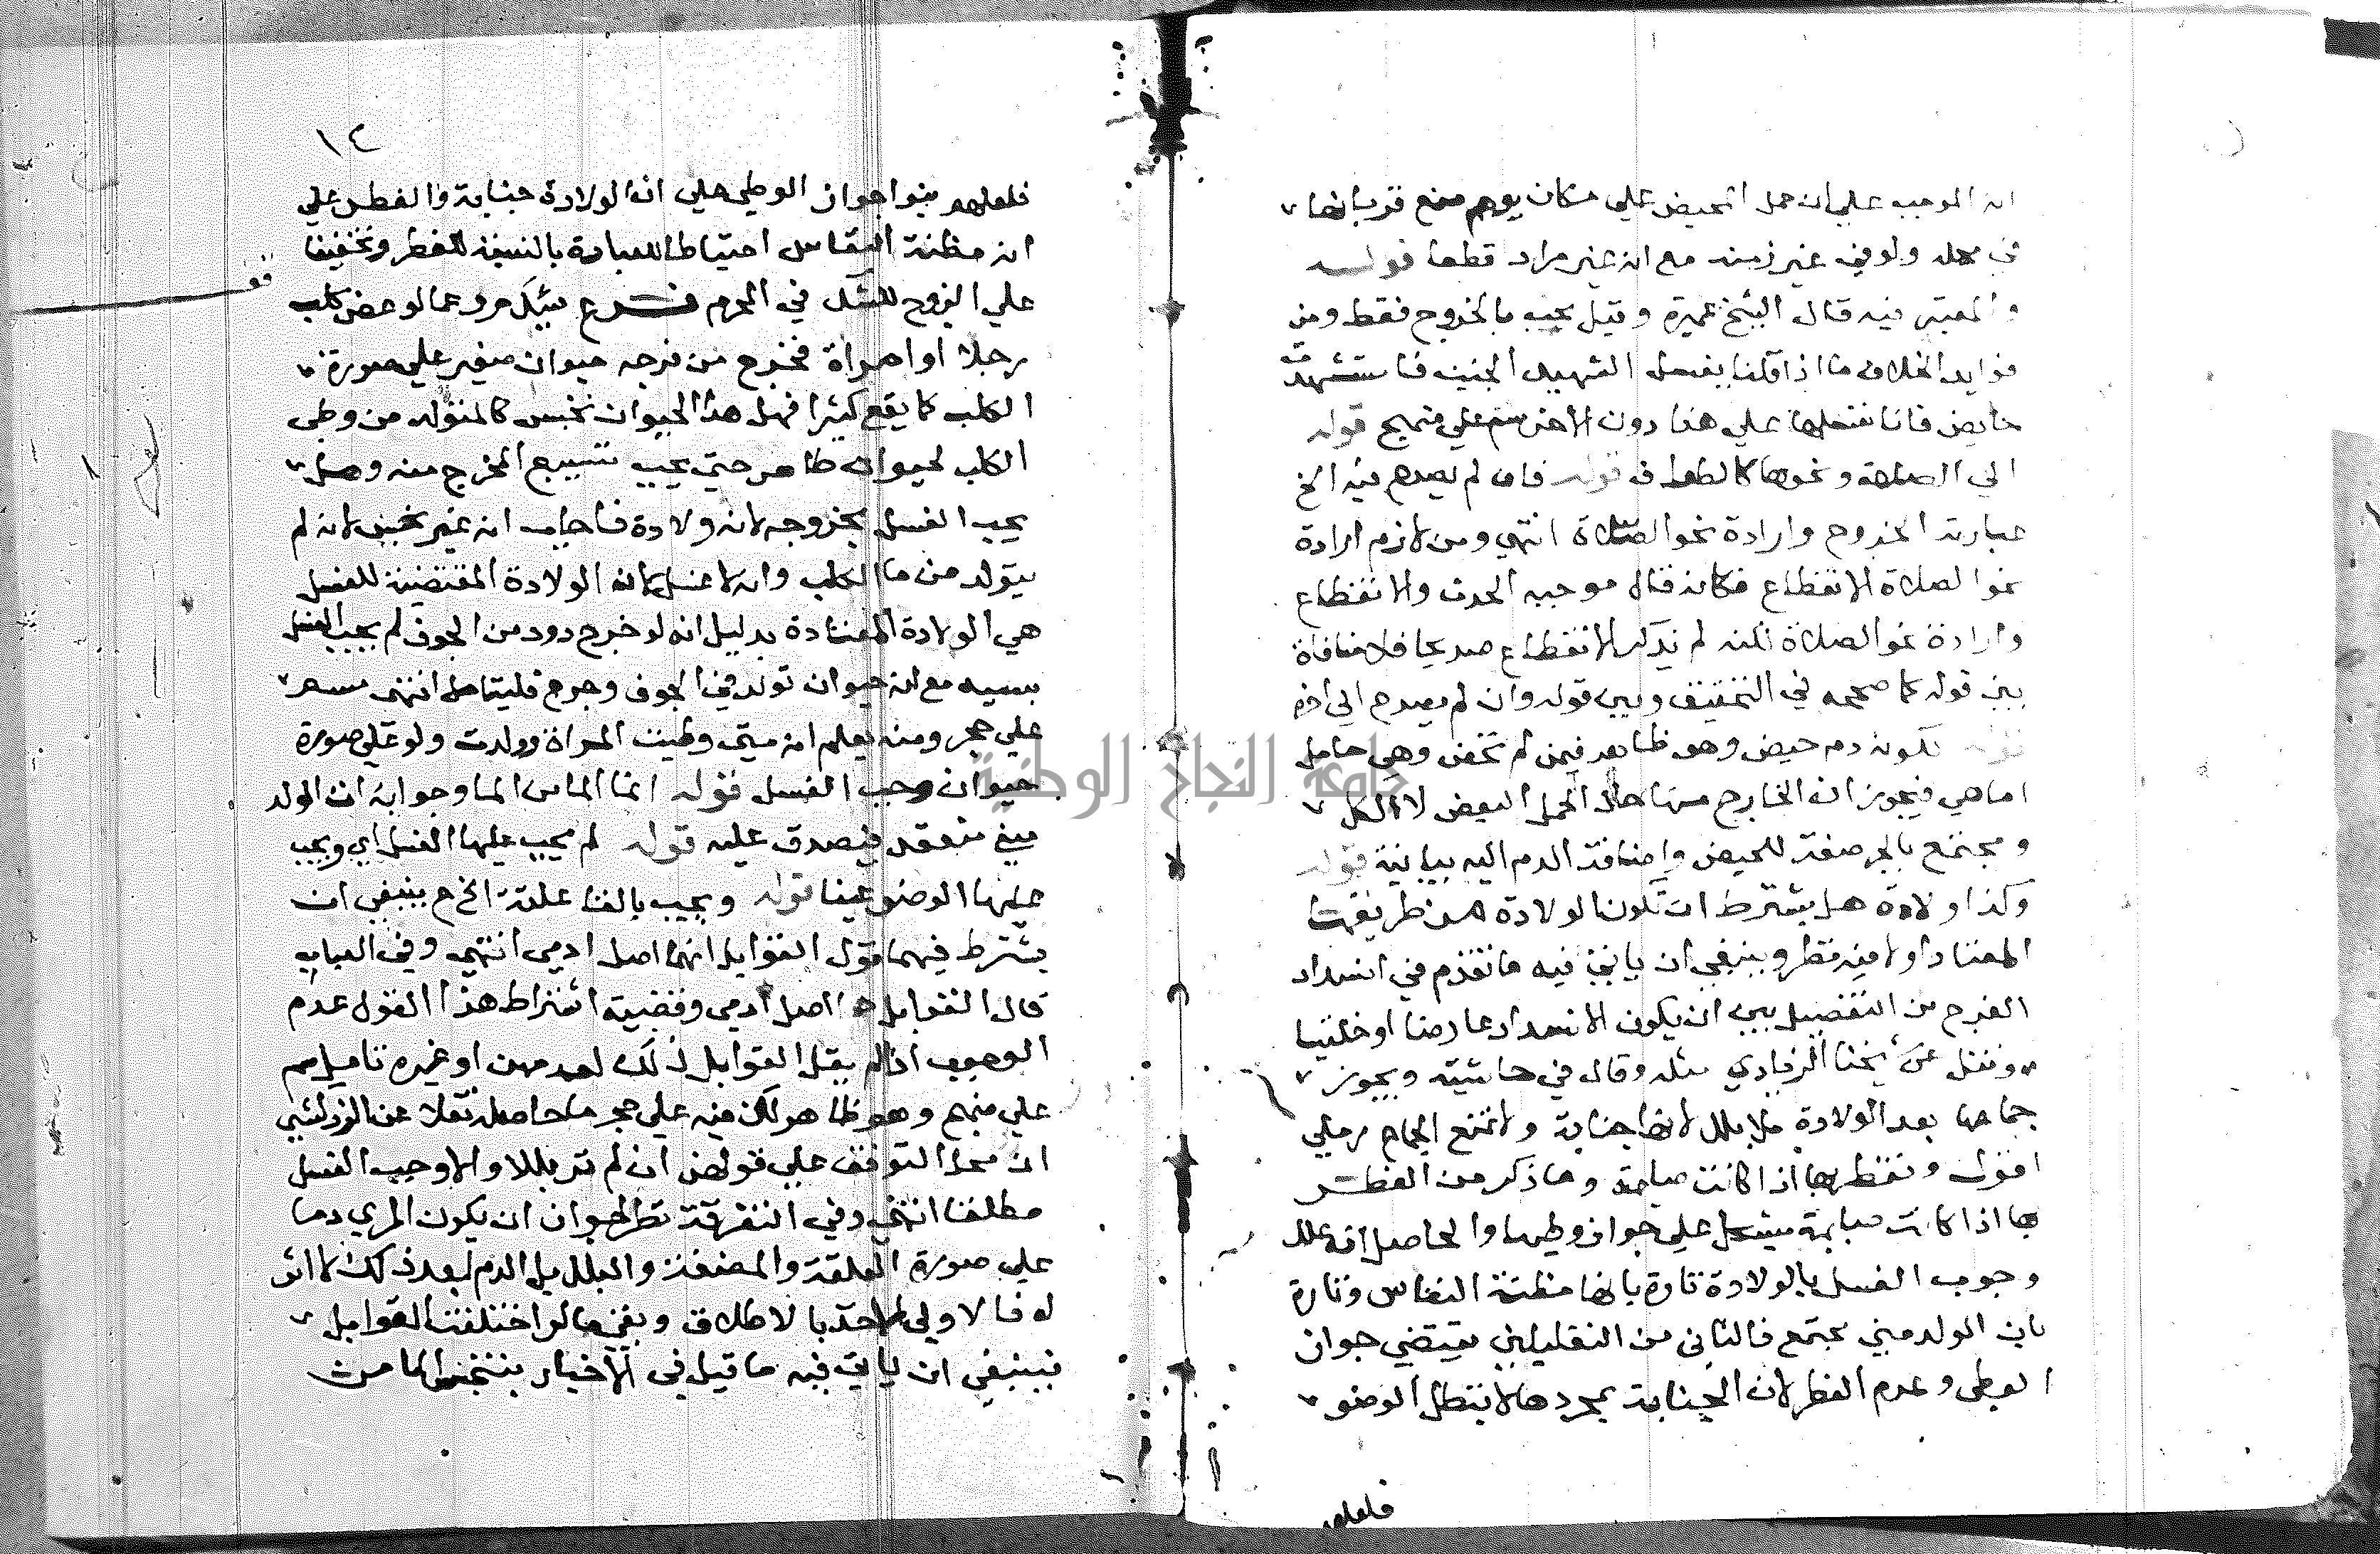 ان الموجب علي ان حمل الحيض علي مكان يوهم منع قربانها
في محله ولو في غير زمنه مع انه غير مراد قطعا قوله
والمعتبر فيه قال الشيخ عميرة وقيل يجب بالخروج فقط ومن
فوايد الخلاف ما اذا قلنا يغسل الشهيد الجنب فاستشهدت
حايض فانا نغسلها علي هذا دون الاخر سم علي منهج قوله
الي الصلاة ونحوها كالطواف قوله فان لم يصرح فيه الخ
عبارته الخروج وارادة نحو الصلاة انتهي ومن لازم ارادة
نحو الصلاة الانقطاع فكانه قال موجبه الحدث والانقطاع
وارادة نحو الصلاة لكنه لم يذكر الانقطاع صريحا فلا منافاة
بين قوله كما صححه في التحقيق وبين قوله وان لم يصرح الي اخره
قوله لكونه دم حيض وهو ظاهر فيمن لم تحض وهي حامل
اما هي فيجوز ان الخارج منها حال الحمل البعض لا الكل
ومجتمع بالجر صفة للحيض واضافة الدم اليه بيانية قوله
وكذا ولادة هل يشترط ان تكون الولادة من طريقها
المعتاد اولا فيه نظر وينبغي ان ياتي فيه ما تقدم في انسداد
الفرج من التفصيل بين ان يكون الانسداد عارضا او خلقيا
ونقل عن شيخنا الزيادي مثله وقال في حاشيته ويجوز
جماعها بعد الولادة بلا بلل لانها جنابة ولا تمنع الجماع رملي
اقول وتفطر بها اذا كانت صايمة وما ذكر من الفطر
بها اذا كانت صايمة يشكل علي جواز وطيها والحاصل انه علل
وجوب الغسل بالولادة تارة بانها مظنة النفاس وتارة
بان الولد مني مجتمع فالثاني من التعليلين يقتضي جواز
الوطي وعدم الفطر لان الجنابة بمجردها لا تبطل الوضو
فلعلهم
١٤
فلعلهم بنوا جواز الوطي علي ان الولادة جنابة والفطر علي
ان مظنة النفاس احتياطا للعبادة بالنسبة للفطر وتخفيفا
علي الزوج للشك في المحرم فرع سئل م ر عما لو عض كلب
رجلا او امراة فخرج من فرجه حيوان صغير علي صورة
الكلب كما يقع كثيرا فهل هذا الحيوان نجس كالمتولد من وطي
الكلب لحيوان طاهر حتي يجب تسبيع المخرج منه وهل
يجب الغسل بخروجه لانه ولادة فاجاب انه غير نجس لانه لم
يتولد من ماء الكلب وانه لا غسل لان الولادة المقتضية للغسل
هي الولادة المعتادة بدليل انه لو خرج دود من الجوف لم يجب الغسل
بسببه مع انه حيوان تولد في الجوف وخرج فليتامل انتهي سم
علي حجر ومنه يعلم انه متي وطيت المراة وولدت ولو علي صورة
حيوان وجب الغسل قوله انما الماء من الماء وجوابه ان الولد
مني منعقد فيصدق عليه قوله لم يجب عليها الغسل اي ويجب
عليها الوضو عينا قوله ويجب بالقاء علقة الخ ع ينبغي ان
يشترط فيهما قول القوابل انهما اصل ادمي انتهي وفي العباب
قال القوابل هو اصل ادمي وقضية اشتراط هذا القول عدم
الوجوب اذا لم يقل القوابل ذلك لعدمهن او غيره تامل سم
علي منهج وهو ظاهر لكن فيه علي حجر ما حاصله نقلا عن الزركشي
ان محل التوقف علي قولهن ان لم تر بللا والا وجب الغسل
مطلقا انتهي وفي التفرقة نظر لجواز ان يكون المري دما
علي صورة العلقة والمضغة والبلل بل الدم بعد ذلك لا اثر
له فالاولي الاخذ بالاطلاق وبقي ما لو اختلفت القوابل
فينبغي ان ياتي فيه ما قيل في الاخبار بتنجس الماء من